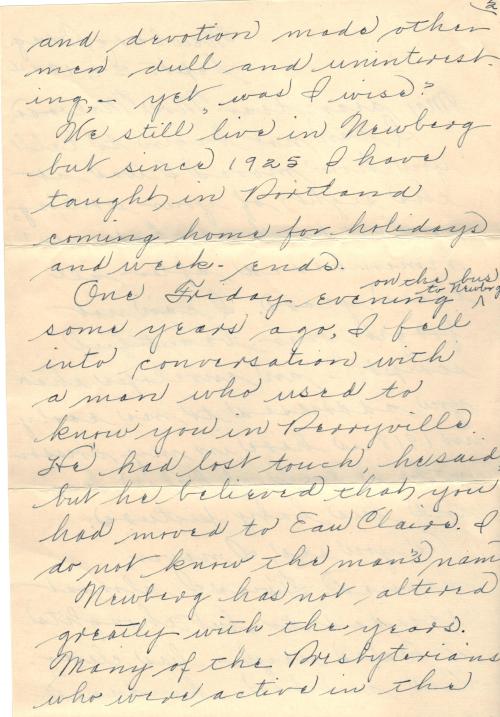 2
and devotion made other
men dull and uninterest-
ing, - yet was I wise?
We still live in Newberg
but since 1925 I have
taught in Portland
coming home for holidays
and week-ends.
on the bus
to Newberg
One Friday evening ^
some years ago, I fell
into conversation with
a man who used to
know you in Perryville
He had lost touch, he said
but he believed that you
had moved to Eau Claire. I
do not know the man's nam
Newberg has not altered
greatly with the years.
Many of the Presbyterians
who were active in the